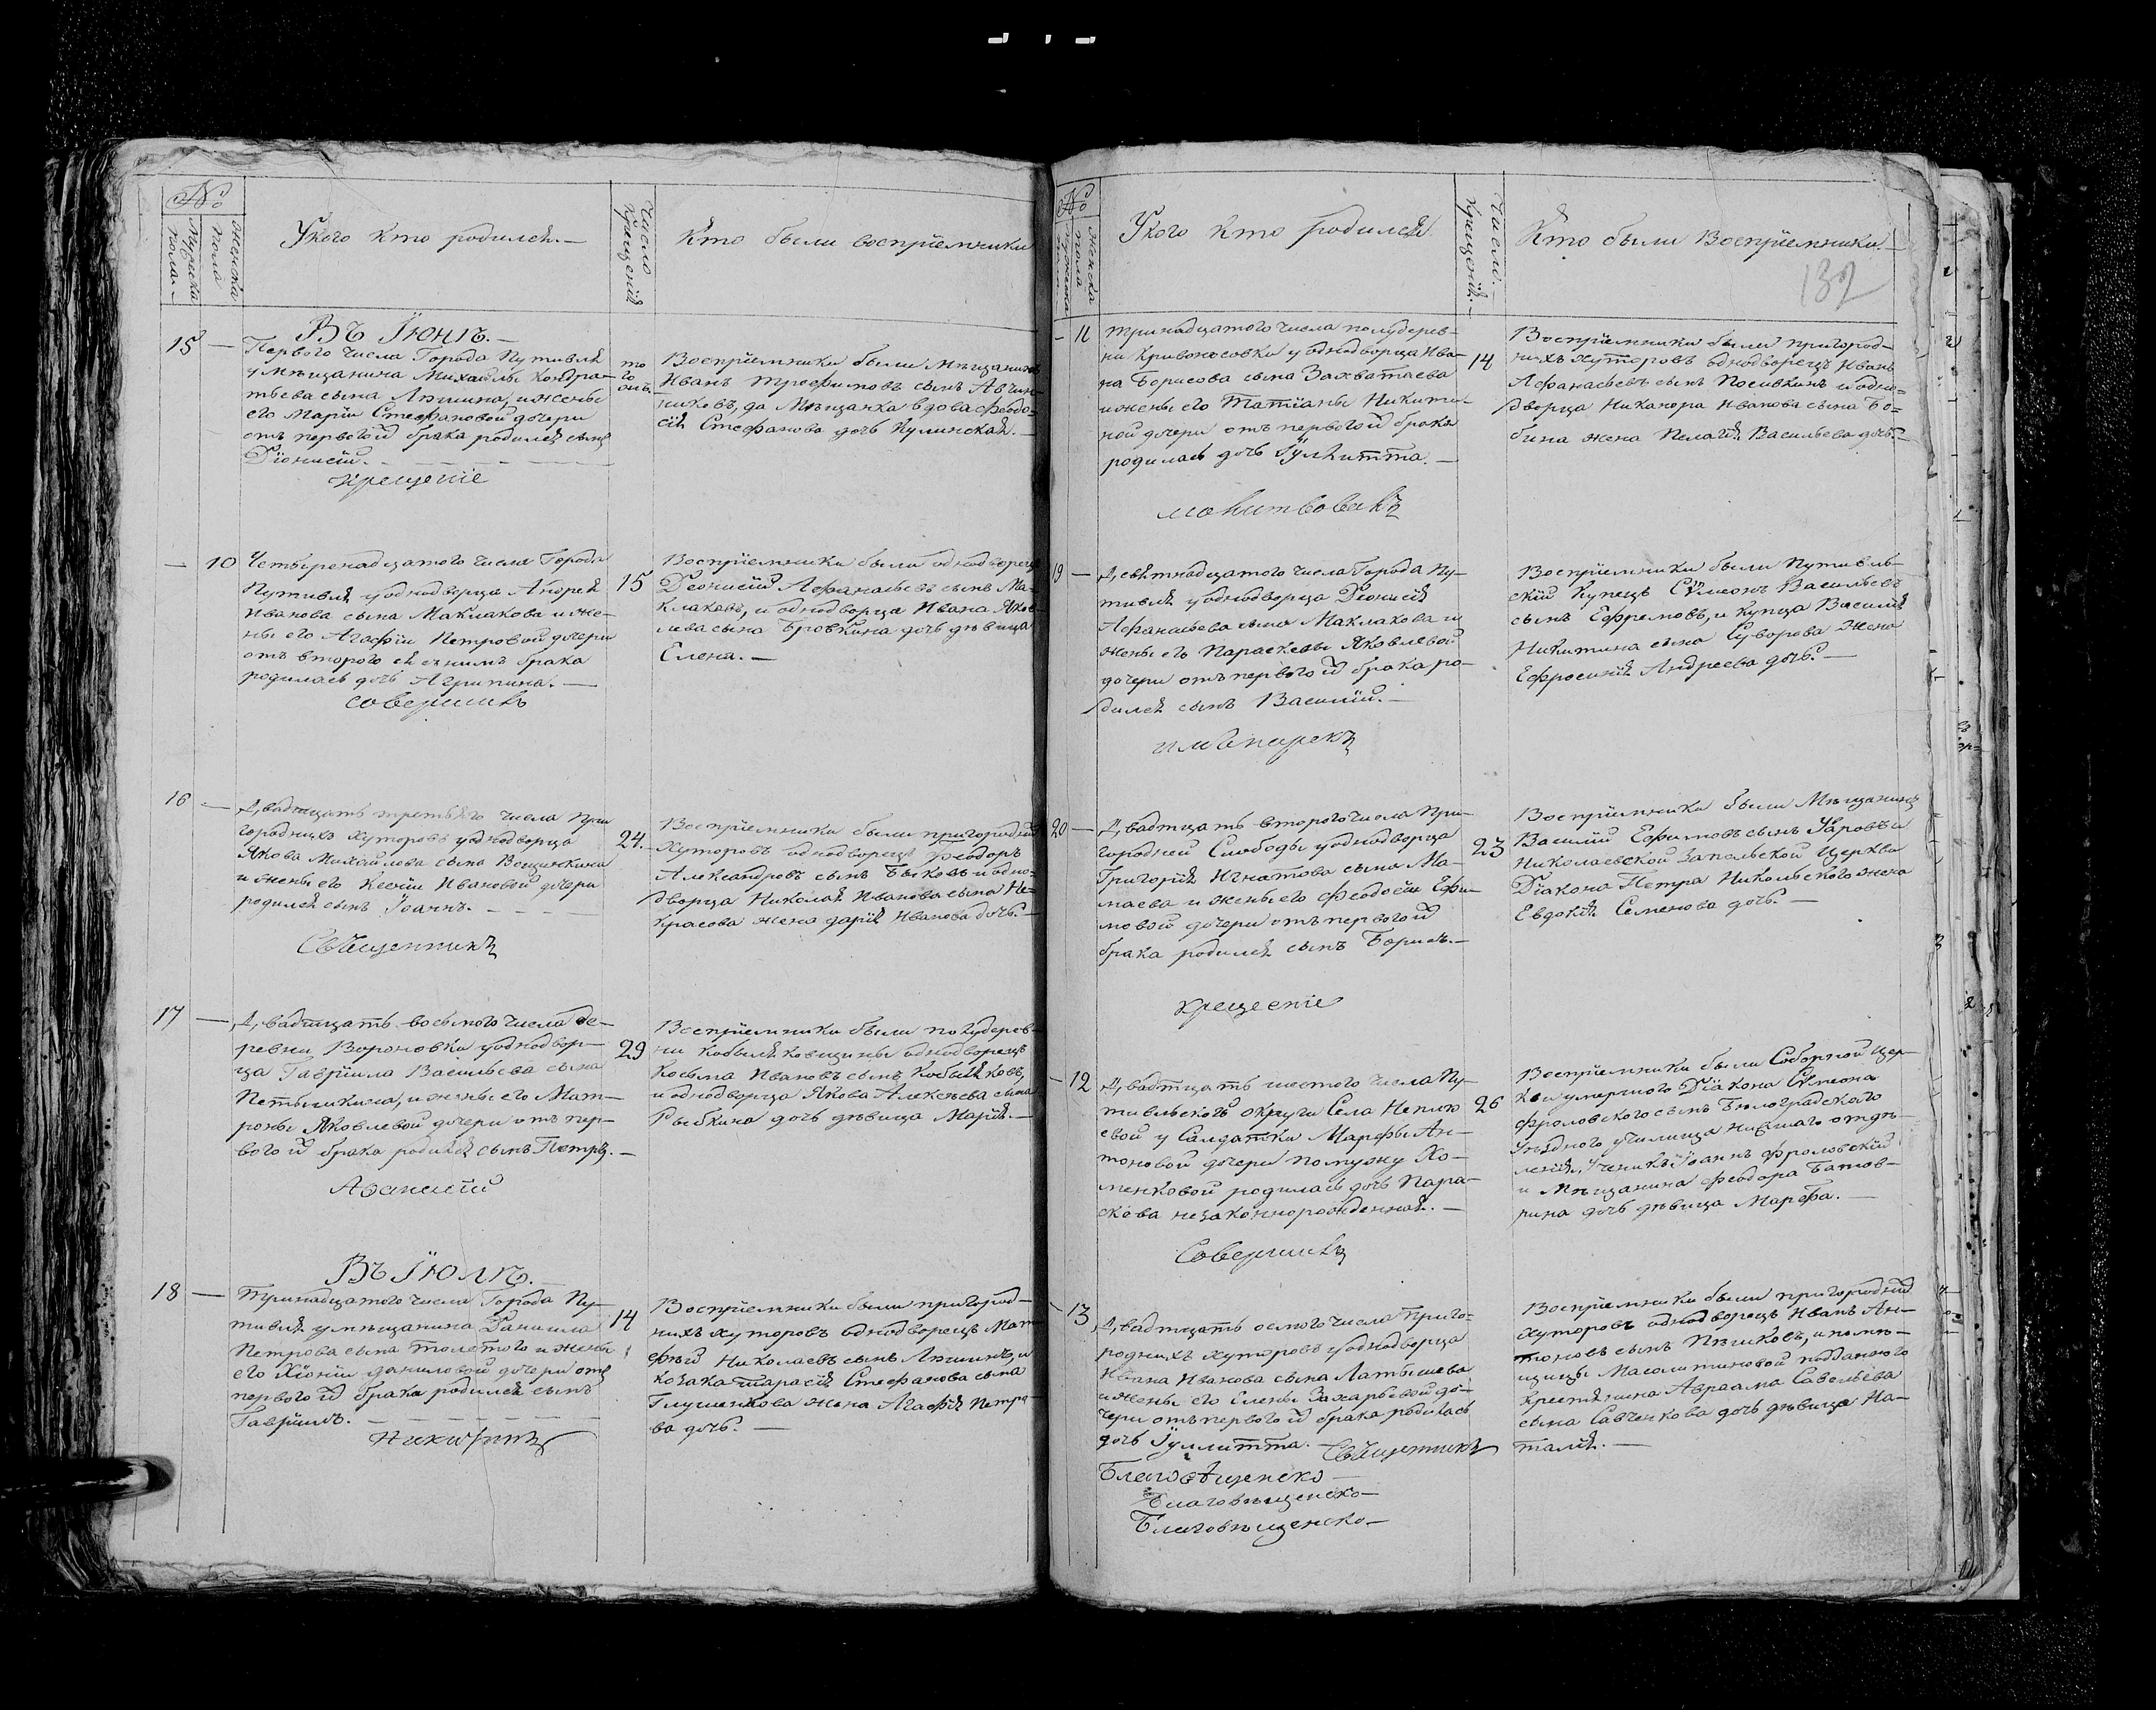 №
Мужеска пола.
Женска пола
Укого кто родился.
Число крещенія
Кто были воспріемники
Въ Іюнѣ.
15 —
Перваго числа Города Путивля
у мѣщанина Михайлы Кондра-
тьева сына Лямина, и жены
его Маріи Стефановой дочери
отъ перваго й брака родился сынъ
Діонисій.
крещеніе
того
Воспріемники были мѣщанинъ
Иванъ Трофимовъ сынъ
никовъ, да Мѣщанка вдова Феодо-
сія Стефанова дочь Кулинская.
— 10
Четыренадцатого числа Города
Путивля у однодворца Андрея
Иванова сына Маклакова и же-
ны его Агафіи Петровой дочери
отъ второго ея снимъ брака
родилась дочь Агрипина. —
совершилъ
15
Воспріемники были однодворецъ
Деонисій Афанасьевъ сынъ Ма-
клаковъ, и однодворца Ивана Яков-
лева сына Бровкина дочь дѣвица
Елена. —
16 —
Двадцать третьяго числа При
городнихъ хуторовъ у однодворца
Якова Михайлова сына
и жены его Ксеніи Ивановой дочери
родился сынъ Іоаннъ.
Священникъ
24.
Воспріемники были пригородныхъ
хуторовъ однодворецъ Феодоръ
Александровъ сынъ Быковъ и одно-
дворца Николая Иванова сына Не-
красова жена дарія Иванова дочь. —
17 —
Двадцать восьмого числа де-
ревни Вороновки у однодвор-
ца Гавріила Васильева сына
Петышкина, и жены его Мат-
роны Яковлевой дочери отъ пер-
ваго й брака родился сынъ Петръ. —
Афанасій
29
Воспріемники были полудерев-
ни Кобыляковщины однодворецъ
Косьма Ивановъ сынъ Кобыляковъ,
и однодворца Якова Алексѣева сына
Рыбкина дочь дѣвица Марія. —
Въ Іюлѣ.
18 —
Тринадцатого числа Города Пу-
тивля у мѣщанина Даниила
Петрова сына Толстого и жены
его Хіоніи Даниловой дочери отъ
перваго й брака родился сынъ
Гавріилъ.
Никитинъ
14
Воспріемники были пригород-
нихъ хуторовъ однодворецъ Мат-
фѣй Николаевъ сынъ Ляминъ, и
козака Тарасія Стефанова сына
Глушенкова жена Агафія Петро-
ва дочь. —
№
Женска пола
Укого кто родился
Число крещенія.
Кто были Воспріемники.
132
— 11
Тринадцатого числа полудерев-
ни Кривоносовки у однодворца Ива-
на Борисова сына Захватаева
и жены его Татіаны Никити-
ной дочери отъ перваго й брака
родилась дочь Іулитта. —
молитвовалъ
14
Воспріемники были пригород-
нихъ хуторовъ однодворецъ Иванъ
Афанасьевъ сынъ Посивкинъ и одно-
дворца Никанора Иванова сына Бо-
бина жена Пелагія Васильева дочь. —
19 —
Девятнадцатого числа Города Пу-
тивля у однодворца Діонисія
Афанасьева сына Маклакова и
жены его Параскевы Яковлевой
дочери отъ перваго й брака ро-
дился сынъ Василій. —
имянарекъ
Воспріемники были Путивль-
скій Купецъ Сѵмеонъ Васильевъ
сынъ Ефремовъ, и купца Василія
Никитина сына Суворова Жена
Ефросинія Андреева дочь. —
20 —
Двадцать второго числа При-
городней Слободы у однодворца
Григорія Игнатова сына Ма-
маева и жены его Феодосіи Ефи-
мовой дочери отъ перваго й
брака родился сынъ Борисъ. —
крещеніе
23
Воспріемники были Мѣщанинъ
Василій Ефимовъ сынъ Уваровъ и
Николаевской Запольской Церкви
Діакона Петра Никольского жена
Евдокія Семенова дочь. —
— 12
Двадцать шестого числа Пу-
тивльской округи Села Неплю
евой у Салдатки Марфы Ан-
тоновой дочери по мужу Хо-
менковой родилась дочь Пара-
скова незаконнорожденная. —
Совершилъ
26
Воспріемники были Соборной Цер-
кви умершого Діакона Сѵмеона
Фроловского сынъ Бѣлоградского
Уѣздного училища нисшаго отдѣ-
ленія, Ученикъ Іоаннъ Фроловскій
и Мѣщанина Феодора Батов-
рина дочь дѣвица Марфа. —
— 13
Двадцать осмого числа Приго-
роднихъ хуторовъ у однодворца
Ивана Иванова сына Латышева
и жены его Елены Захарьевой до-
чери отъ перваго й брака родилась
дочь Іуллитта. — Священникъ
Благовѣщенско —
Благовѣщенско —
Благовѣщенско —
Воспріемники были пригородній
хуторовъ однодворецъ Иванъ Ан-
тоновъ сынъ Пѣшковъ, и помѣ-
щицы Масолитиновой подданного
крестьянина Авраама Савельева
сына Савченкова дочь дѣвица На-
талія. —